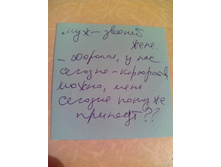 муж - звонит
жене.
- дорогая, у нас
сегодня - корпоратив
можно, меня
сегодня попозже
принесут??